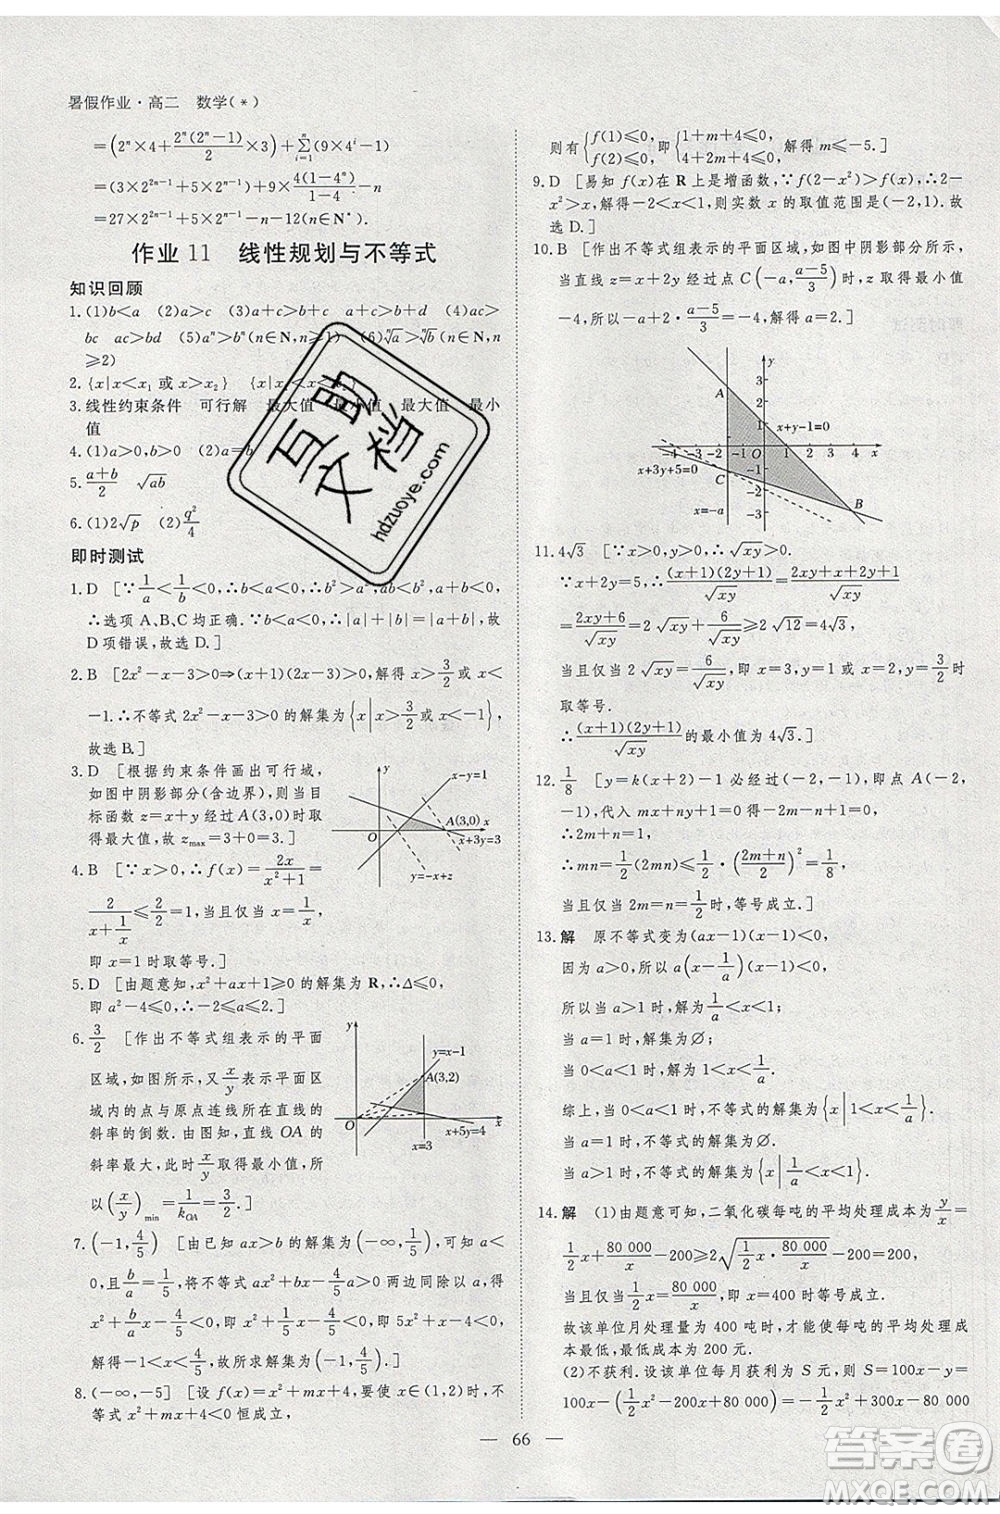 暑假作业·高二 数学(*)
=(2ⁿ×4+2ⁿ(2ⁿ-1)/2×3)+∑ᵢ₌₁ⁿ(9×4ⁱ-1)
=(3×2²ⁿ⁻¹+5×2ⁿ⁻¹)+9×4(1-4ⁿ)/(1-4)-n
=27×2²ⁿ⁻¹+5×2ⁿ⁻¹-n-12(n∈N*).
作业 11 线性规划与不等式
知识回顾
1.(1)b<a (2)a>c (3)a+c>b+c a+c>b+d (4)ac>
bc ac>bd (5)aⁿ>bⁿ(n∈N,n≥1) (6)ⁿ√a>ⁿ√b(n∈N,n
≥2)
2.{x|x<x₁ 或 x>x₂} {x|x₁<x<x₂}
3.线性约束条件 可行解 最大值 最小值 最大值 最小
值
4.(1)a>0,b>0
5.(a+b)/2 √ab
6.(1)2√p (2)q²/4
即时测试
1.D [∵1/a<1/b<0,∴b<a<0,∴b²>a²,ab<b²,a+b<0,
∴选项 A、B、C 均正确.∵b<a<0,∴|a|+|b|=|a+b|,故
D 项错误,故选 D.]
2.B [2x²-x-3>0⇒(x+1)(2x-3)>0,解得 x>3/2或 x<
-1.∴不等式 2x²-x-3>0 的解集为{x|x>3/2或 x<-1},
故选 B.]
3.D [根据约束条件画出可行域,
如图中阴影部分(含边界),则当目
标函数 z=x+y 经过 A(3,0)时取
得最大值,故 zmax=3+0=3.]
x-y=1
A(3,0) x
O
x+3y=3
y=-x+z
4.B [∵x>0,∴f(x)=2x/(x²+1)=
2/(x+1/x)≤2/2=1,当且仅当 x=1/x,
即 x=1 时取等号.]
5.D [由题意知,x²+ax+1≥0 的解集为 R,∴Δ≤0,
即 a²-4≤0,∴-2≤a≤2.]
6.3/2 [作出不等式组表示的平面
区域,如图所示,x/y表示的平面
区域内的点与原点连线所在的
斜率的倒数.由图知,直线 OA 的
斜率最大,此时x/y取得最小值,所
以(x/y)min=1/kOA=3/2.]
y
y=x-1
A(3,2)
O
x
x+5y=4
x=3
7.(-1,4/5) [由已知 ax>b 的解集为(-∞,1/5),可知 a<
0,且b/a=1/5,将不等式 ax²+bx-4/5a>0 两边同除以 a,得
x²+b/ax-4/5<0,即 x²+1/5x-4/5<0,即 5x²+x-4<0,
解得-1<x<4/5,故所求解集为(-1,4/5).]
8.(-∞,-5] [设 f(x)=x²+mx+4,要使 x∈(1,2)时,不
等式 x²+mx+4<0 恒成立,
则有{f(1)≤0,f(2)≤0,即{1+m+4≤0,4+2m+4≤0,解得 m≤-5.]
9.D [易知 f(x)在 R 上是增函数,∵f(2-x²)>f(x),∴2
-x²>x,解得-2<x<1,则实数 x 的取值范围是(-2,1).故
选 D.]
10.B [作出不等式组表示的平面区域,如图中阴影部分所示,
当直线 z=x+2y 经过点 C(-a,(a-5)/3)时,z 取得最小值
-4,所以-a+2·(a-5)/3=-4,解得 a=2.]
y
3
A
x+y-1=0
-4 -3 -2 -1 O 1 2 3 4 x
x+3y+5=0
C
B
x=-a
-3
11.4√3 [∵x>0,y>0,∴√xy>0.
∵x+2y=5,∴(x+1)(2y+1)/√xy=(2xy+x+2y+1)/√xy
=(2xy+6)/√xy=2√xy+6/√xy≥2√12=4√3,
当且仅当 2√xy=6/√xy,即 x=3,y=1 或 x=2,y=3/2时
取等号.
∴(x+1)(2y+1)/√xy的最小值为 4√3.]
12.1/8 [y=k(x+2)-1 必经过(-2,-1),即点 A(-2,
-1),代入 mx+ny+1=0 得-2m-n+1=0,
∴2m+n=1,
∴mn=1/2(2mn)≤1/2·((2m+n)/2)²=1/8,
当且仅当 2m=n=1/2时,等号成立.]
13.解 原不等式变为(ax-1)(x-1)<0,
因为 a>0,所以 a(x-1/a)(x-1)<0,
所以当 a>1 时,解得1/a<x<1;
当 a=1 时,解集为∅;
当 0<a<1 时,解得 1<x<1/a.
综上,当 0<a<1 时,不等式的解集为{x|1<x<1/a}.
当 a=1 时,不等式的解集为∅.
当 a>1 时,不等式的解集为{x|1/a<x<1}.
14.解 (1)由题意可知,二氧化碳每吨的平均处理成本为y/x=
1/2x+80 000/x-200≥2√(1/2x·80 000/x)-200=200,
当且仅当1/2x=80 000/x,即 x=400 时等号成立,
故该单位月处理量为 400 吨时,才能使每吨的平均处理成
本最低,最低成本为 200 元.
(2)不获利.设该单位每月获利为 S 元,则 S=100x-y=
100x-(1/2x²-200x+80 000)=-1/2x²+300x-80 000=
— 66 —
互助
文档
hdzuoye.com
答案圈
MXQE.COM